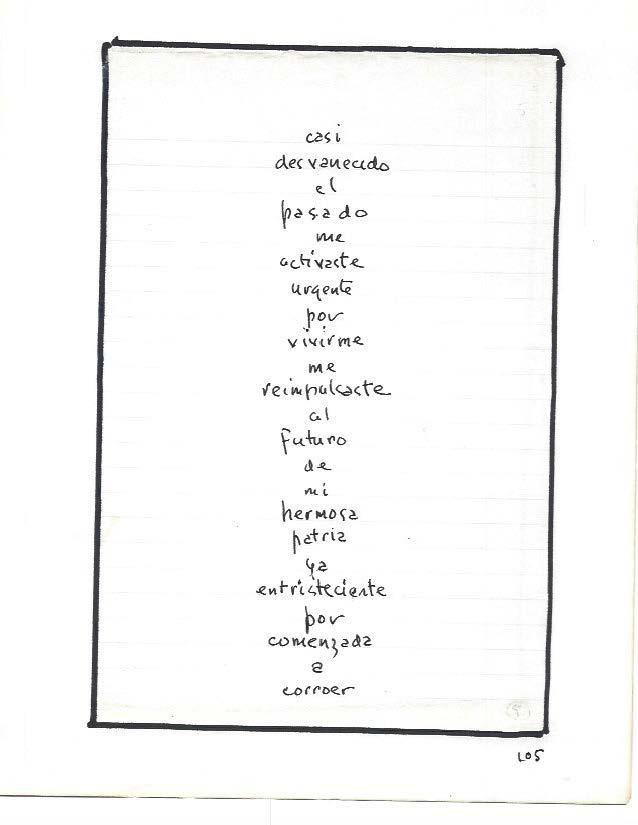 casi
desvanecido
el
pasado
me
activaste
urgente
por
vivirme
me
reimpulsaste
al
futuro
de
mi
hermosa
patria
ya
entristeciente
por
comenzada
a
corroer
105